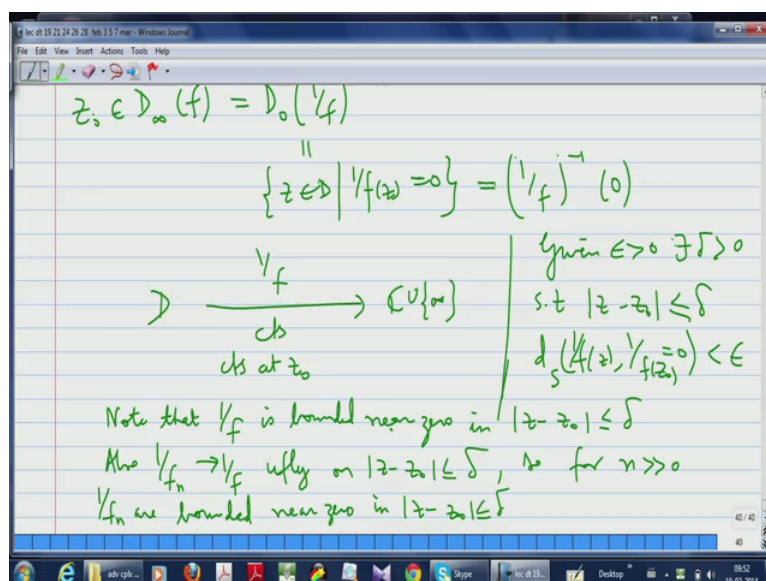 lec dt 19 21 24 26 28 feb 3 5 7 mar - Windows Journal
File Edit View Insert Actions Tools Help
z₀ ∈ D_∞(f) = D₀(1/f)
||
{z ∈ D | 1/f(z) = 0} = (1/f)⁻¹(0)
D —1/f→ ℂ∪{∞}
cts
cts at z₀
Given ϵ>0 ∃ δ>0
s.t |z - z₀| ≤ δ
d_S(1/f(z), 1/f(z₀) = 0) < ϵ
Note that 1/f is bounded near zero in |z - z₀| ≤ δ
Also 1/fₙ → 1/f ufly on |z - z₀| ≤ δ, so for n >> 0
1/fₙ are bounded near zero in |z - z₀| ≤ δ
40 / 40
40
adv cplx ...
Skype
lec dt 19...
Desktop
09:52